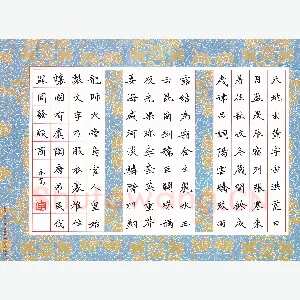 天地玄黃宇宙洪荒日
月盈昃辰宿列張寒來
暑往秋收冬藏閏餘成
歲律呂調陽雲騰致雨
露結為霜金生麗水玉
出崑岡劍號巨闕珠稱
夜光果珍李柰菜重芥
薑海鹹河淡鱗潛羽翔
龍師火帝鳥官人皇始
制文字乃服衣裳推位
讓國有虞陶唐弔民伐
罪周發殷湯